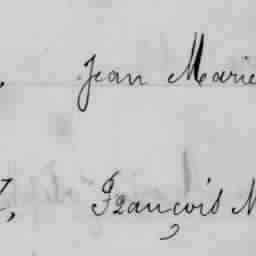 , Jean Marie
, François M